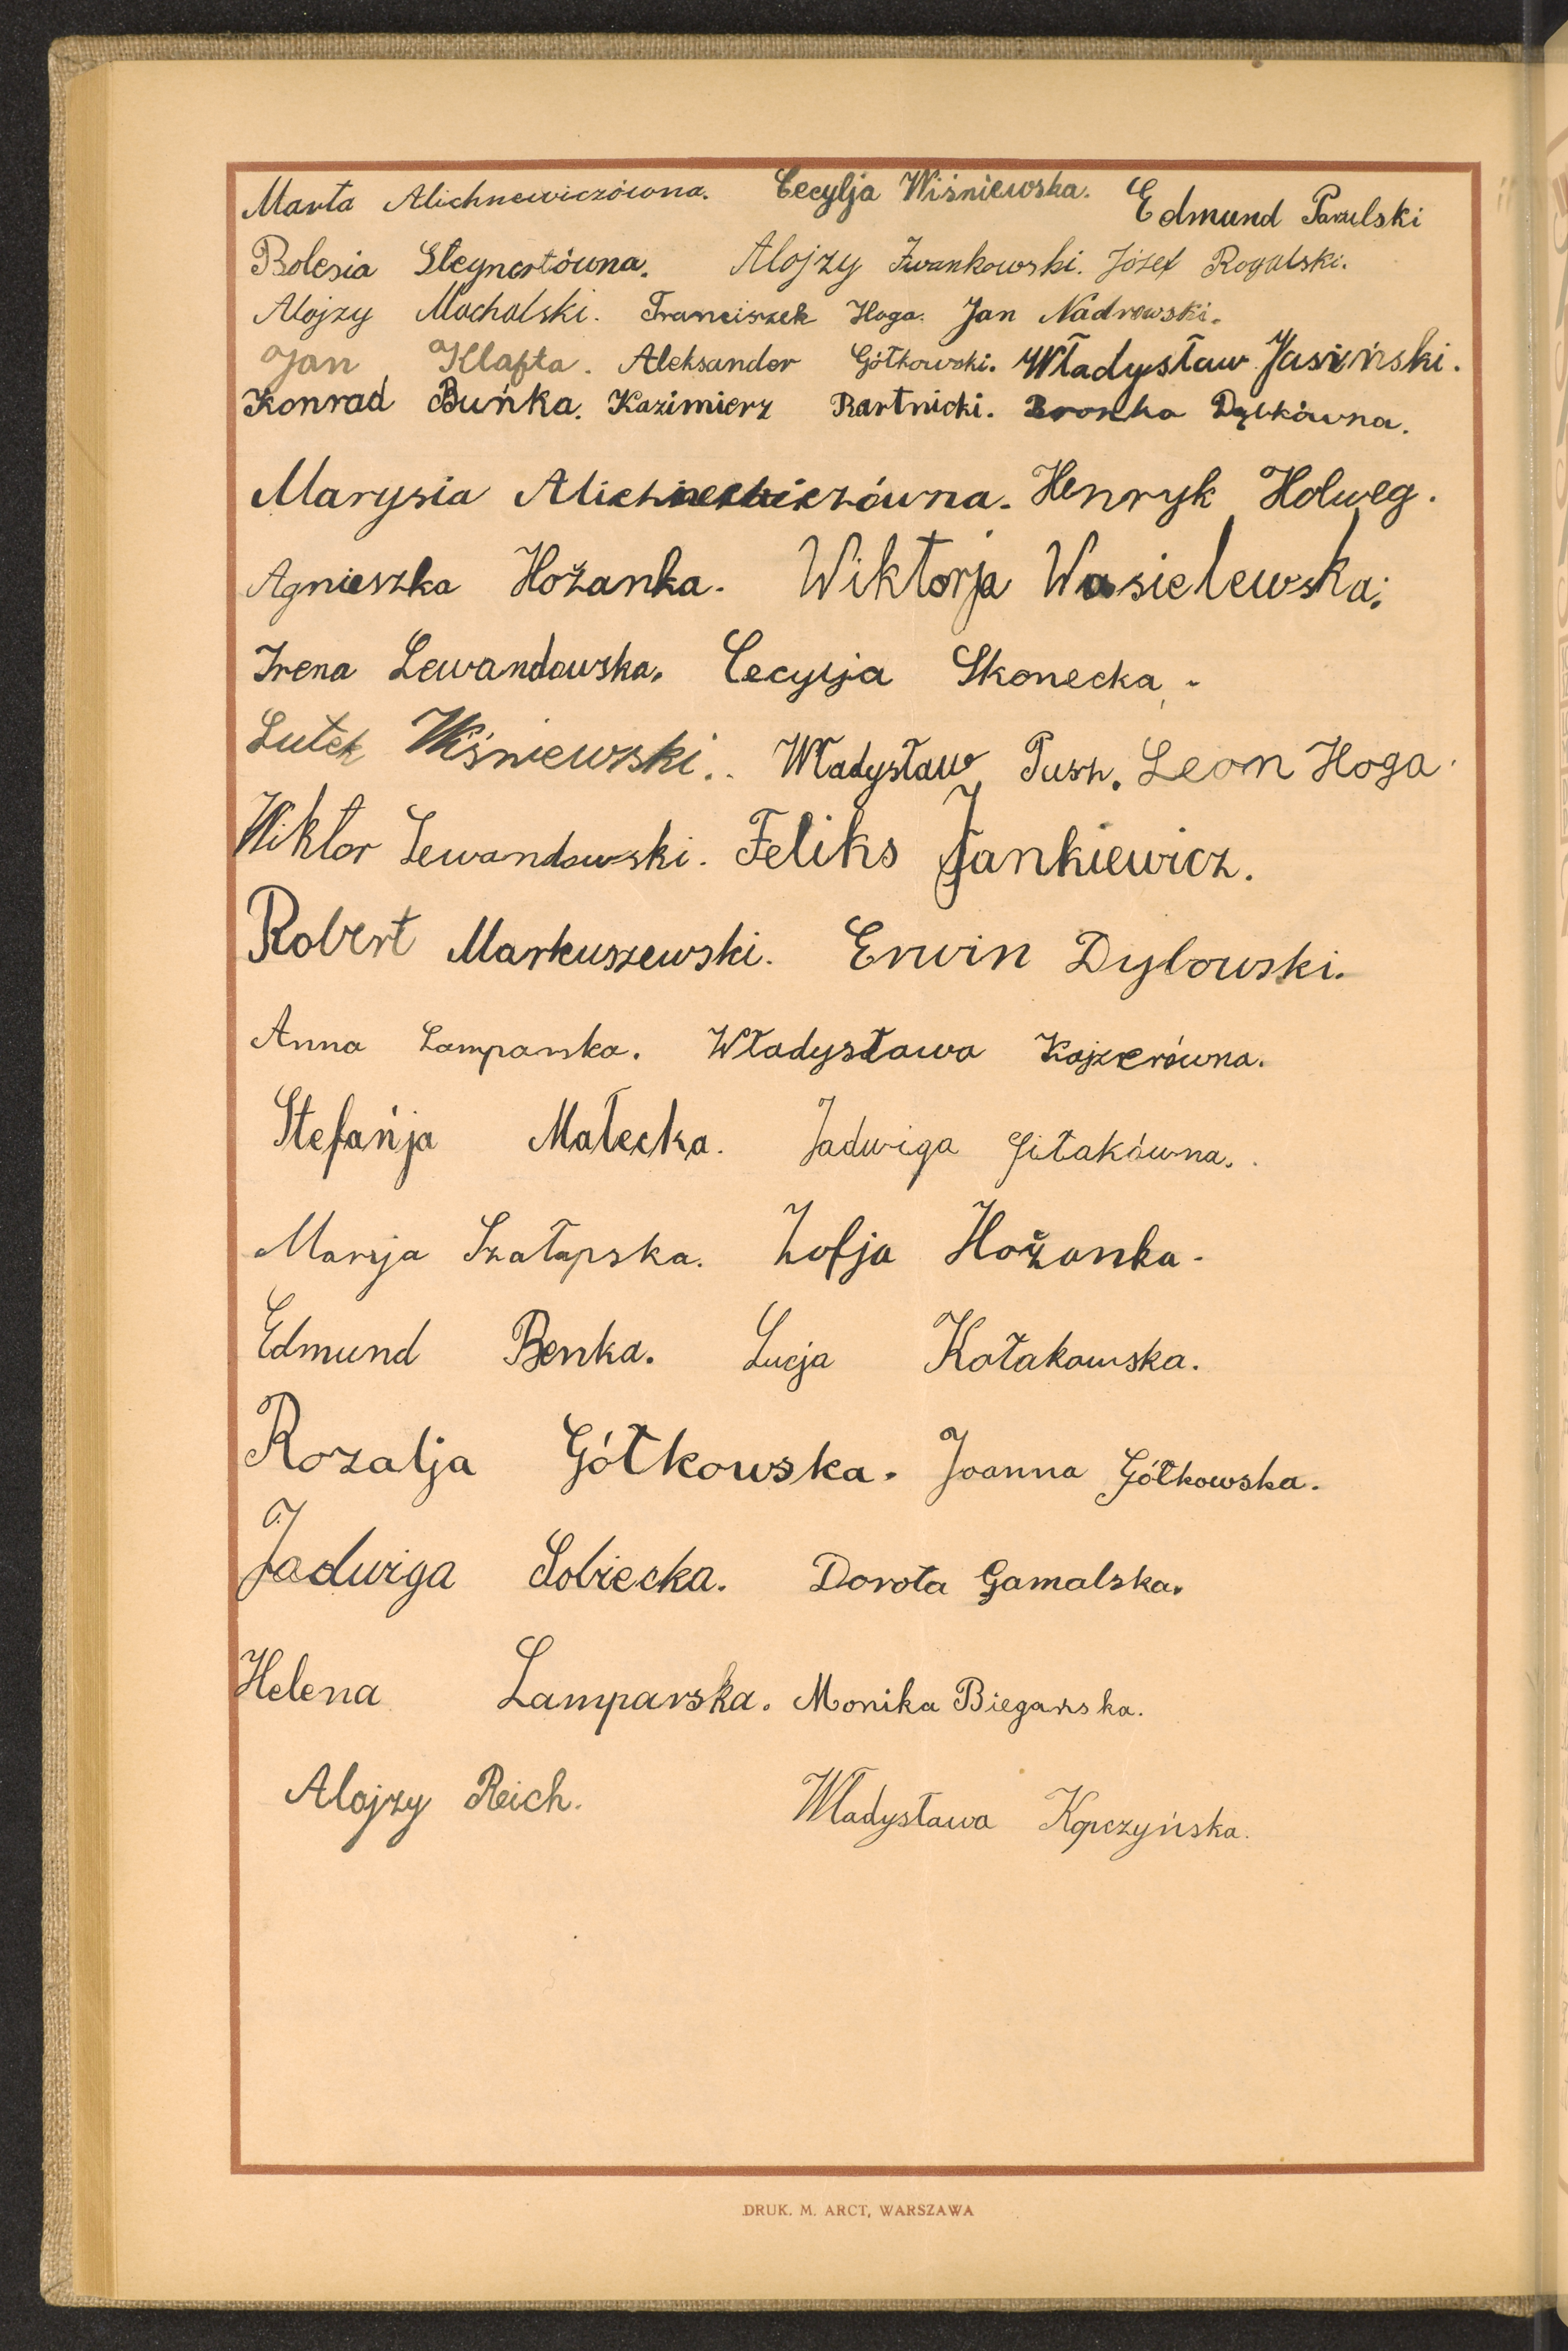 Marta Alichnewiczówna. Cecylja Wiśniewska. Edmund Parulski
Bolesia Steynertówna. Alojzy Iwankowski. Józef Rogalski.
Alojzy Machalski. Franciszek Hoga. Jan Nadrowski.
Jan Klafta. Aleksander Gółkowski. Władysław Jasiński.
Konrad Buńka. Kazimierz Bartnicki. Bronka Dąbkówna.
Marysia Alichnewiczówna. Henryk Holweg.
Agnieszka Hożanka. Wiktorja Wasielewska.
Irena Lewandowska. Cecylja Skonecka.
Lutek Wiśniewski. Władysław Pusz. Leon Hoga.
Wiktor Lewandowski. Feliks Jankiewicz.
Robert Markuszewski. Erwin Dybowski.
Anna Lamparska. Władysława Kajzerówna.
Stefańja Małecka. Jadwiga Gitakówna.
Marija Szałapska. Zofja Hożanka.
Edmund Benka. Lucja Kołakowska.
Rozalja Gółkowska. Joanna Gółkowska.
Jadwiga Sobiecka. Dorota Gamalska.
Helena Lamparska. Monika Biegańska.
Alojzy Reich. Władysława Kopczyńska.
DRUK. M. ARCT, WARSZAWA